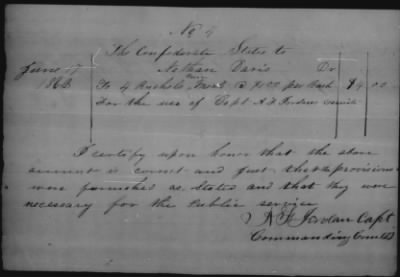 No 4
The Confederate States to
June 17 Nathan Davis Dr
1863 To 4 Bushels Meal @ $1.00 per Bush $4 00
For the use of Capt A. F.
I certify upon honor that the above
account is correct and just that the provisions
were furnished as stated and that they were
necessary for the Public service
Capt
Commanding